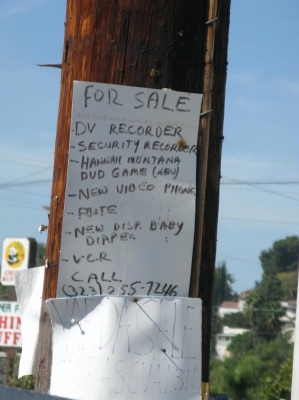 FOR SALE
- DV RECORDER
- SECURITY RECORDER
- HANNAH MONTANA
DVD GAME (NEW)
- NEW VIDEO PHONE
- FLUTE
- NEW DISP. BABY
DIAPER
- V.C.R.
CALL
(323) 255-7246
SALE